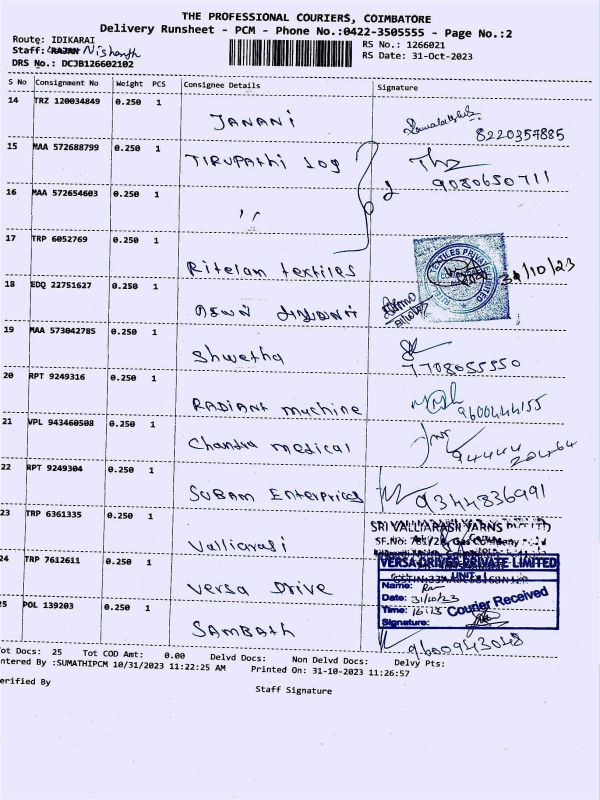 THE PROFESSIONAL COURIERS, COIMBATORE
Delivery Runsheet - PCM - Phone No.:0422-3505555 - Page No.:2
Route: IDIKARAI
RS No.: 1266021
Staff: RAJAN Nishanth
RS Date: 31-Oct-2023
DRS No.: DCJB126602102
S No Consignment No Weight PCS Consignee Details Signature
14 TRZ 120034849 0.250 1
JANANI
8220357885
15 MAA 572688799 0.250 1
TIRUPAThi Log
9080650711
16 MAA 572654603 0.250 1
〃
2
17 TRP 6052769 0.250 1
Ritelam textiles
31/10/23
18 EDQ 22751627 0.250 1
19 MAA 573042785 0.250 1
Shwetha
7708055550
20 RPT 9249316 0.250 1
RADIANT machine
9600444155
21 VPL 943460508 0.250 1
Chandra medical
94444
204464
22 RPT 9249304 0.250 1
SUBAM Enterprices
9344836991
23 TRP 6361335 0.250 1
SRI VALLIARASI YARNS
SF.No:
Valliarasi
24 TRP 7612611 0.250 1
VERSA DRIVES PRIVATE LIMITED
UNIT-I
Versa Drive
Name:
Date: 31/10/23
Time: 16:15 Courier Received
Signature:
25 POL 139203 0.250 1
SAMBATh
9600943048
ot Docs: 25 Tot COD Amt: 0.00 Delvd Docs: Non Delvd Docs: Delvy Pts:
ntered By :SUMATHIPCM 10/31/2023 11:22:25 AM Printed On: 31-10-2023 11:26:57
erified By
Staff Signature